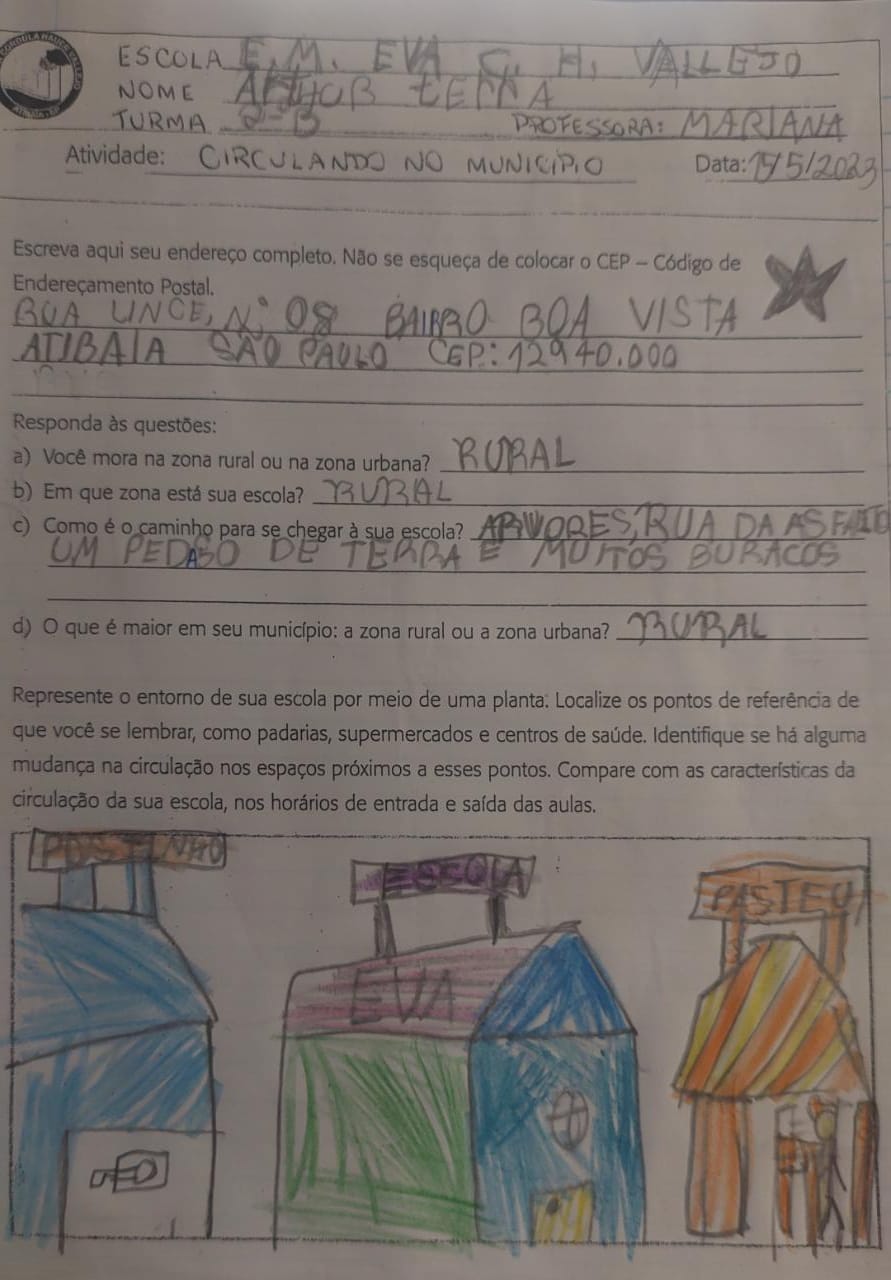 ESCOLA E.M. EVA C. H. VALLEJO
NOME ARTHUR TERRA
TURMA 2º B PROFESSORA: MARIANA
Atividade: CIRCULANDO NO MUNICÍPIO Data: 15/5/2023
Escreva aqui seu endereço completo. Não se esqueça de colocar o CEP – Código de
Endereçamento Postal.
RUA LINCE, Nº 08 BAIRRO BOA VISTA
ATIBAIA SÃO PAULO CEP: 12940.000
Responda às questões:
a) Você mora na zona rural ou na zona urbana? RURAL
b) Em que zona está sua escola? RURAL
c) Como é o caminho para se chegar à sua escola? ARVORES, RUA DA ASFALTO
UM PEDASO DE TERRA E MUITOS BURACOS
d) O que é maior em seu município: a zona rural ou a zona urbana? RURAL
Represente o entorno de sua escola por meio de uma planta. Localize os pontos de referência de
que você se lembrar, como padarias, supermercados e centros de saúde. Identifique se há alguma
mudança na circulação nos espaços próximos a esses pontos. Compare com as características da
circulação da sua escola, nos horários de entrada e saída das aulas.
POSTINHO
ESCOLA
PASTEU
EVA